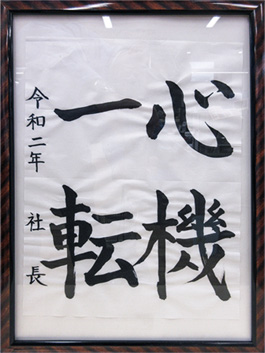 心機
一転
令和二年 社長